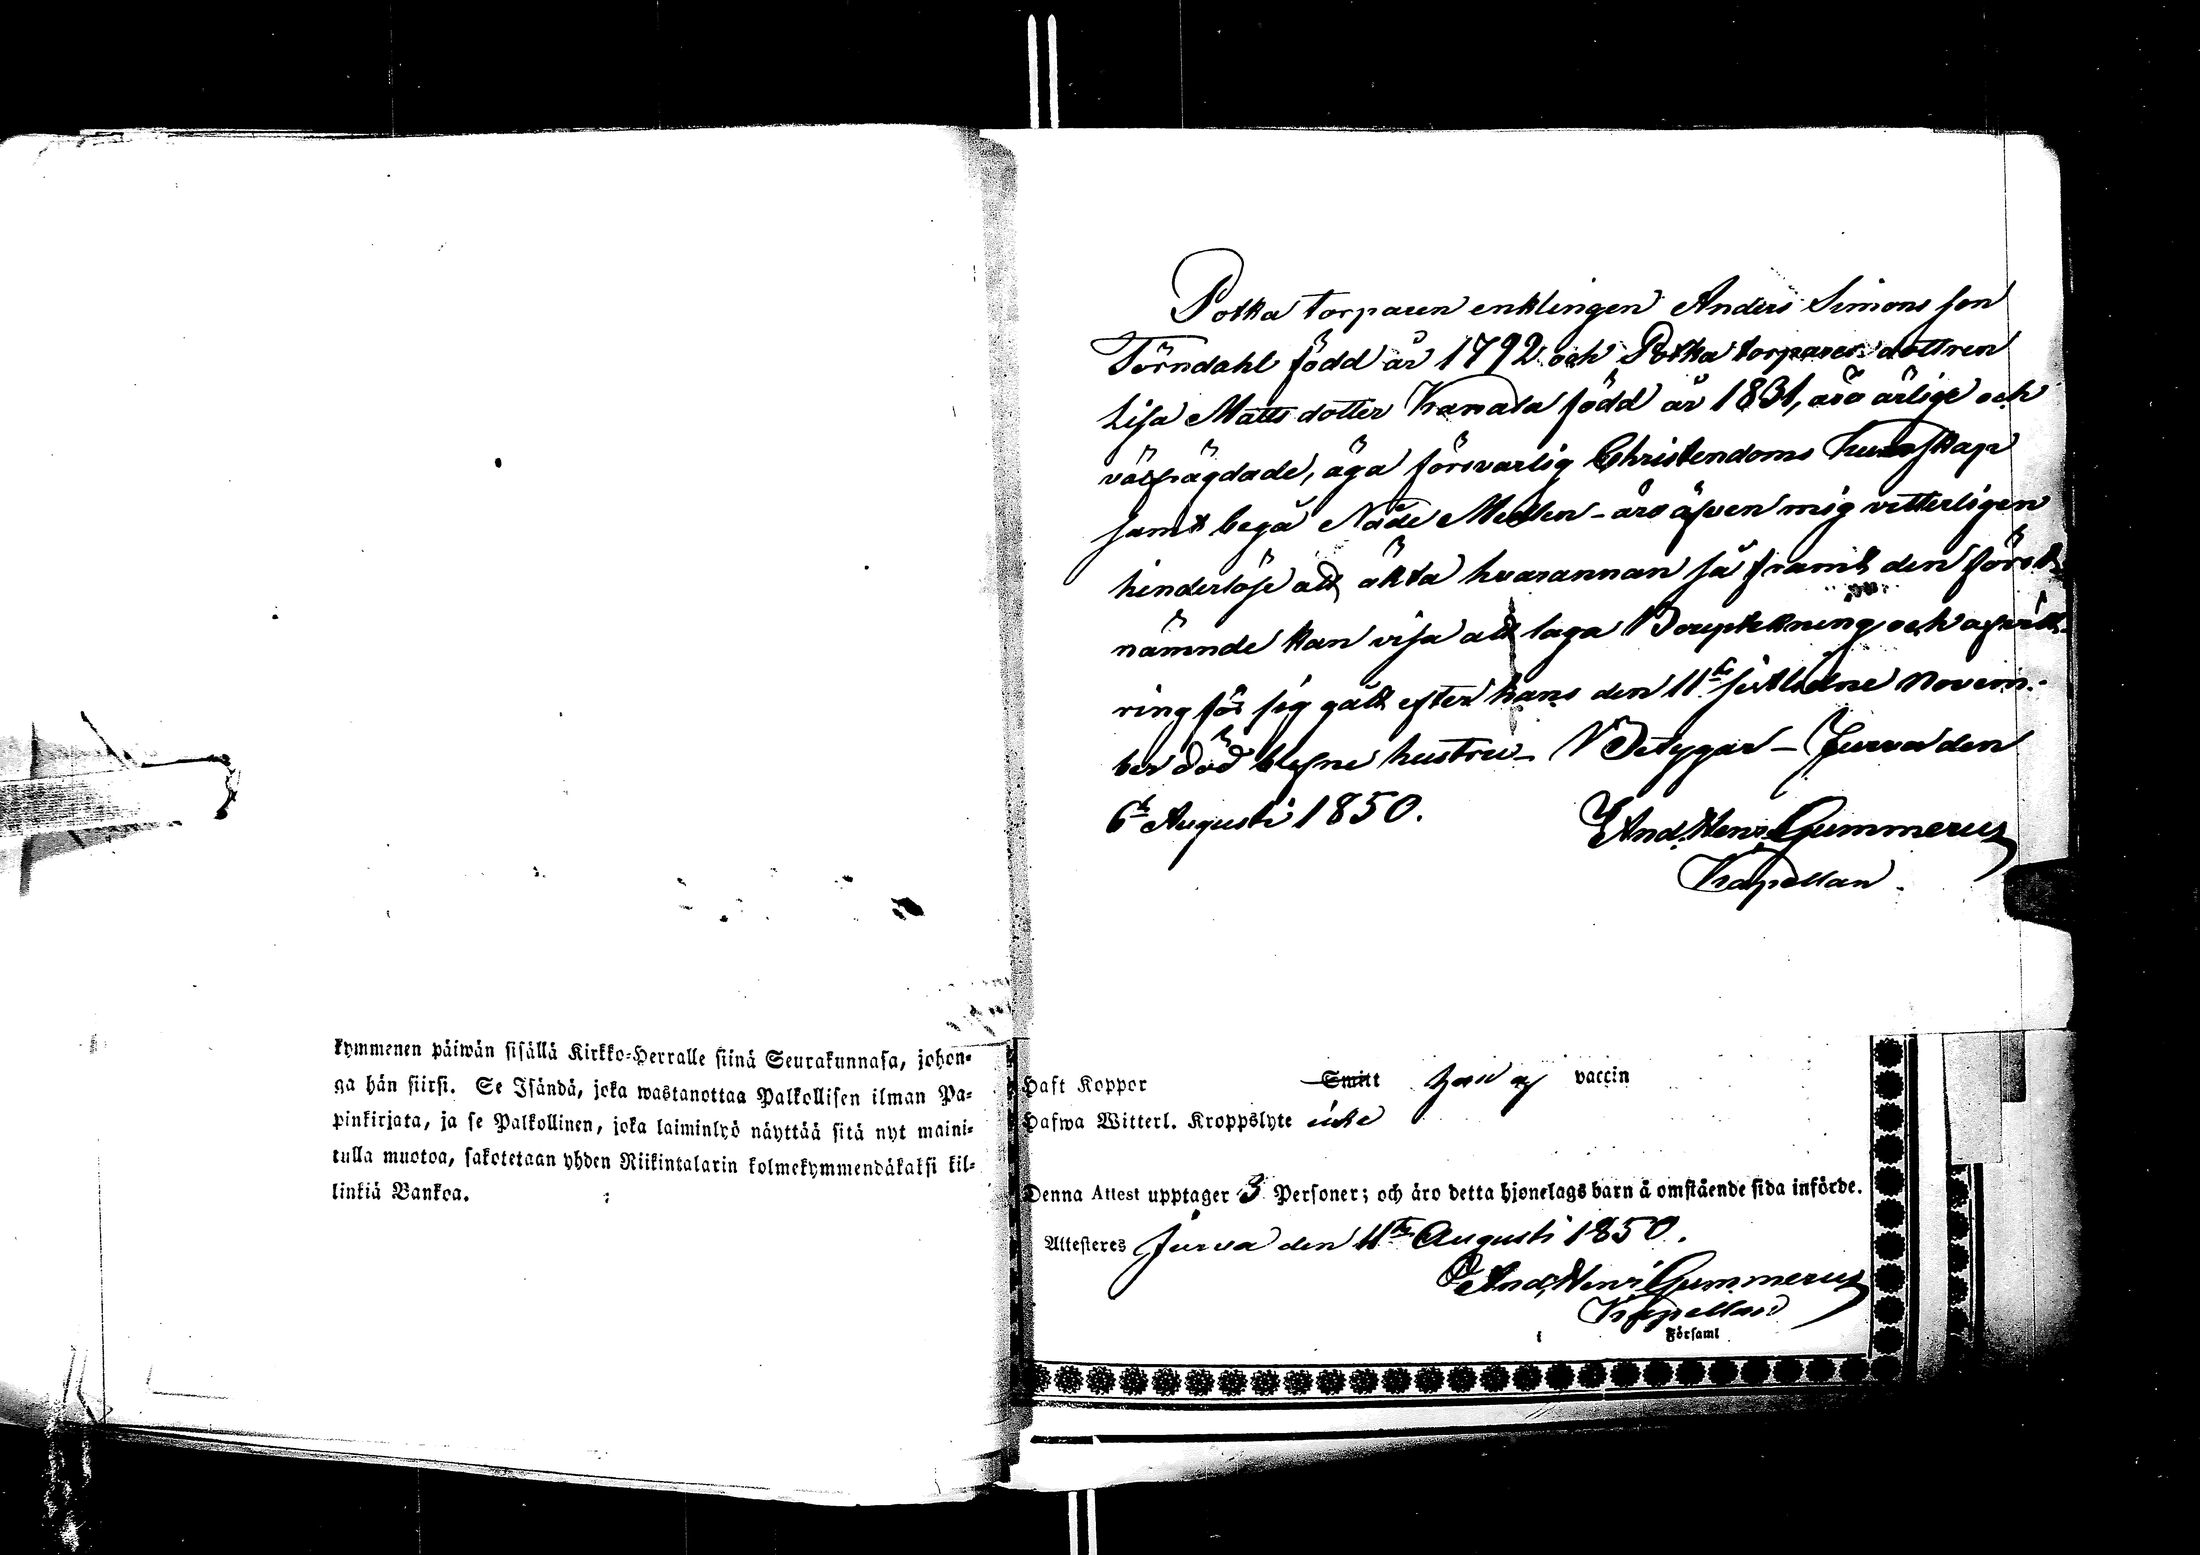 kymmenen päiwän sisällä Kirkko-Herralle siinä Seurakunnasa, johon-
ga hän siirsi. Se Isändä, joka wastanottaa Palkollisen ilman Pa-
pinkirjata, ja se Palkollinen, joka laiminlyö näyttää sitä nyt maini-
tulla muotoa, sakotetaan yhden Riikintalarin kolmekymmendäkaksi kil-
linkiä Bankoa.
Potka torparen enklingen Anders Simons son
Törndahl född år 1792 och Potka torpare dottren
Lisa Matts dotter Kanala född år 1831, äro ärlige och
välfrägdade, äga försvarlig Christendoms kunskap
samt begå Nåde Medlen - äro äfven mig vetterligen
hinderlöse att äkta hvarannan så framt den först-
nämnde kan visa att laga Bouptekning och afvitt-
ring för sig gått efter hans den 11te sistledne Novem-
ber död blefne hustru - Betygar - Jurva den
6te Augusti 1850.
And. Henr. Gummerus
Kapellan.
Haft Koppor Smitt vaccin
Hafwa Witterl. Kroppslyte icke
Denna Attest upptager 3 Personer; och äro detta hjonelags barn å omstående sida införde.
Attesteres Jurva den 11te Augusti 1850.
And. Henr. Gummerus
Kapellan
i Församl